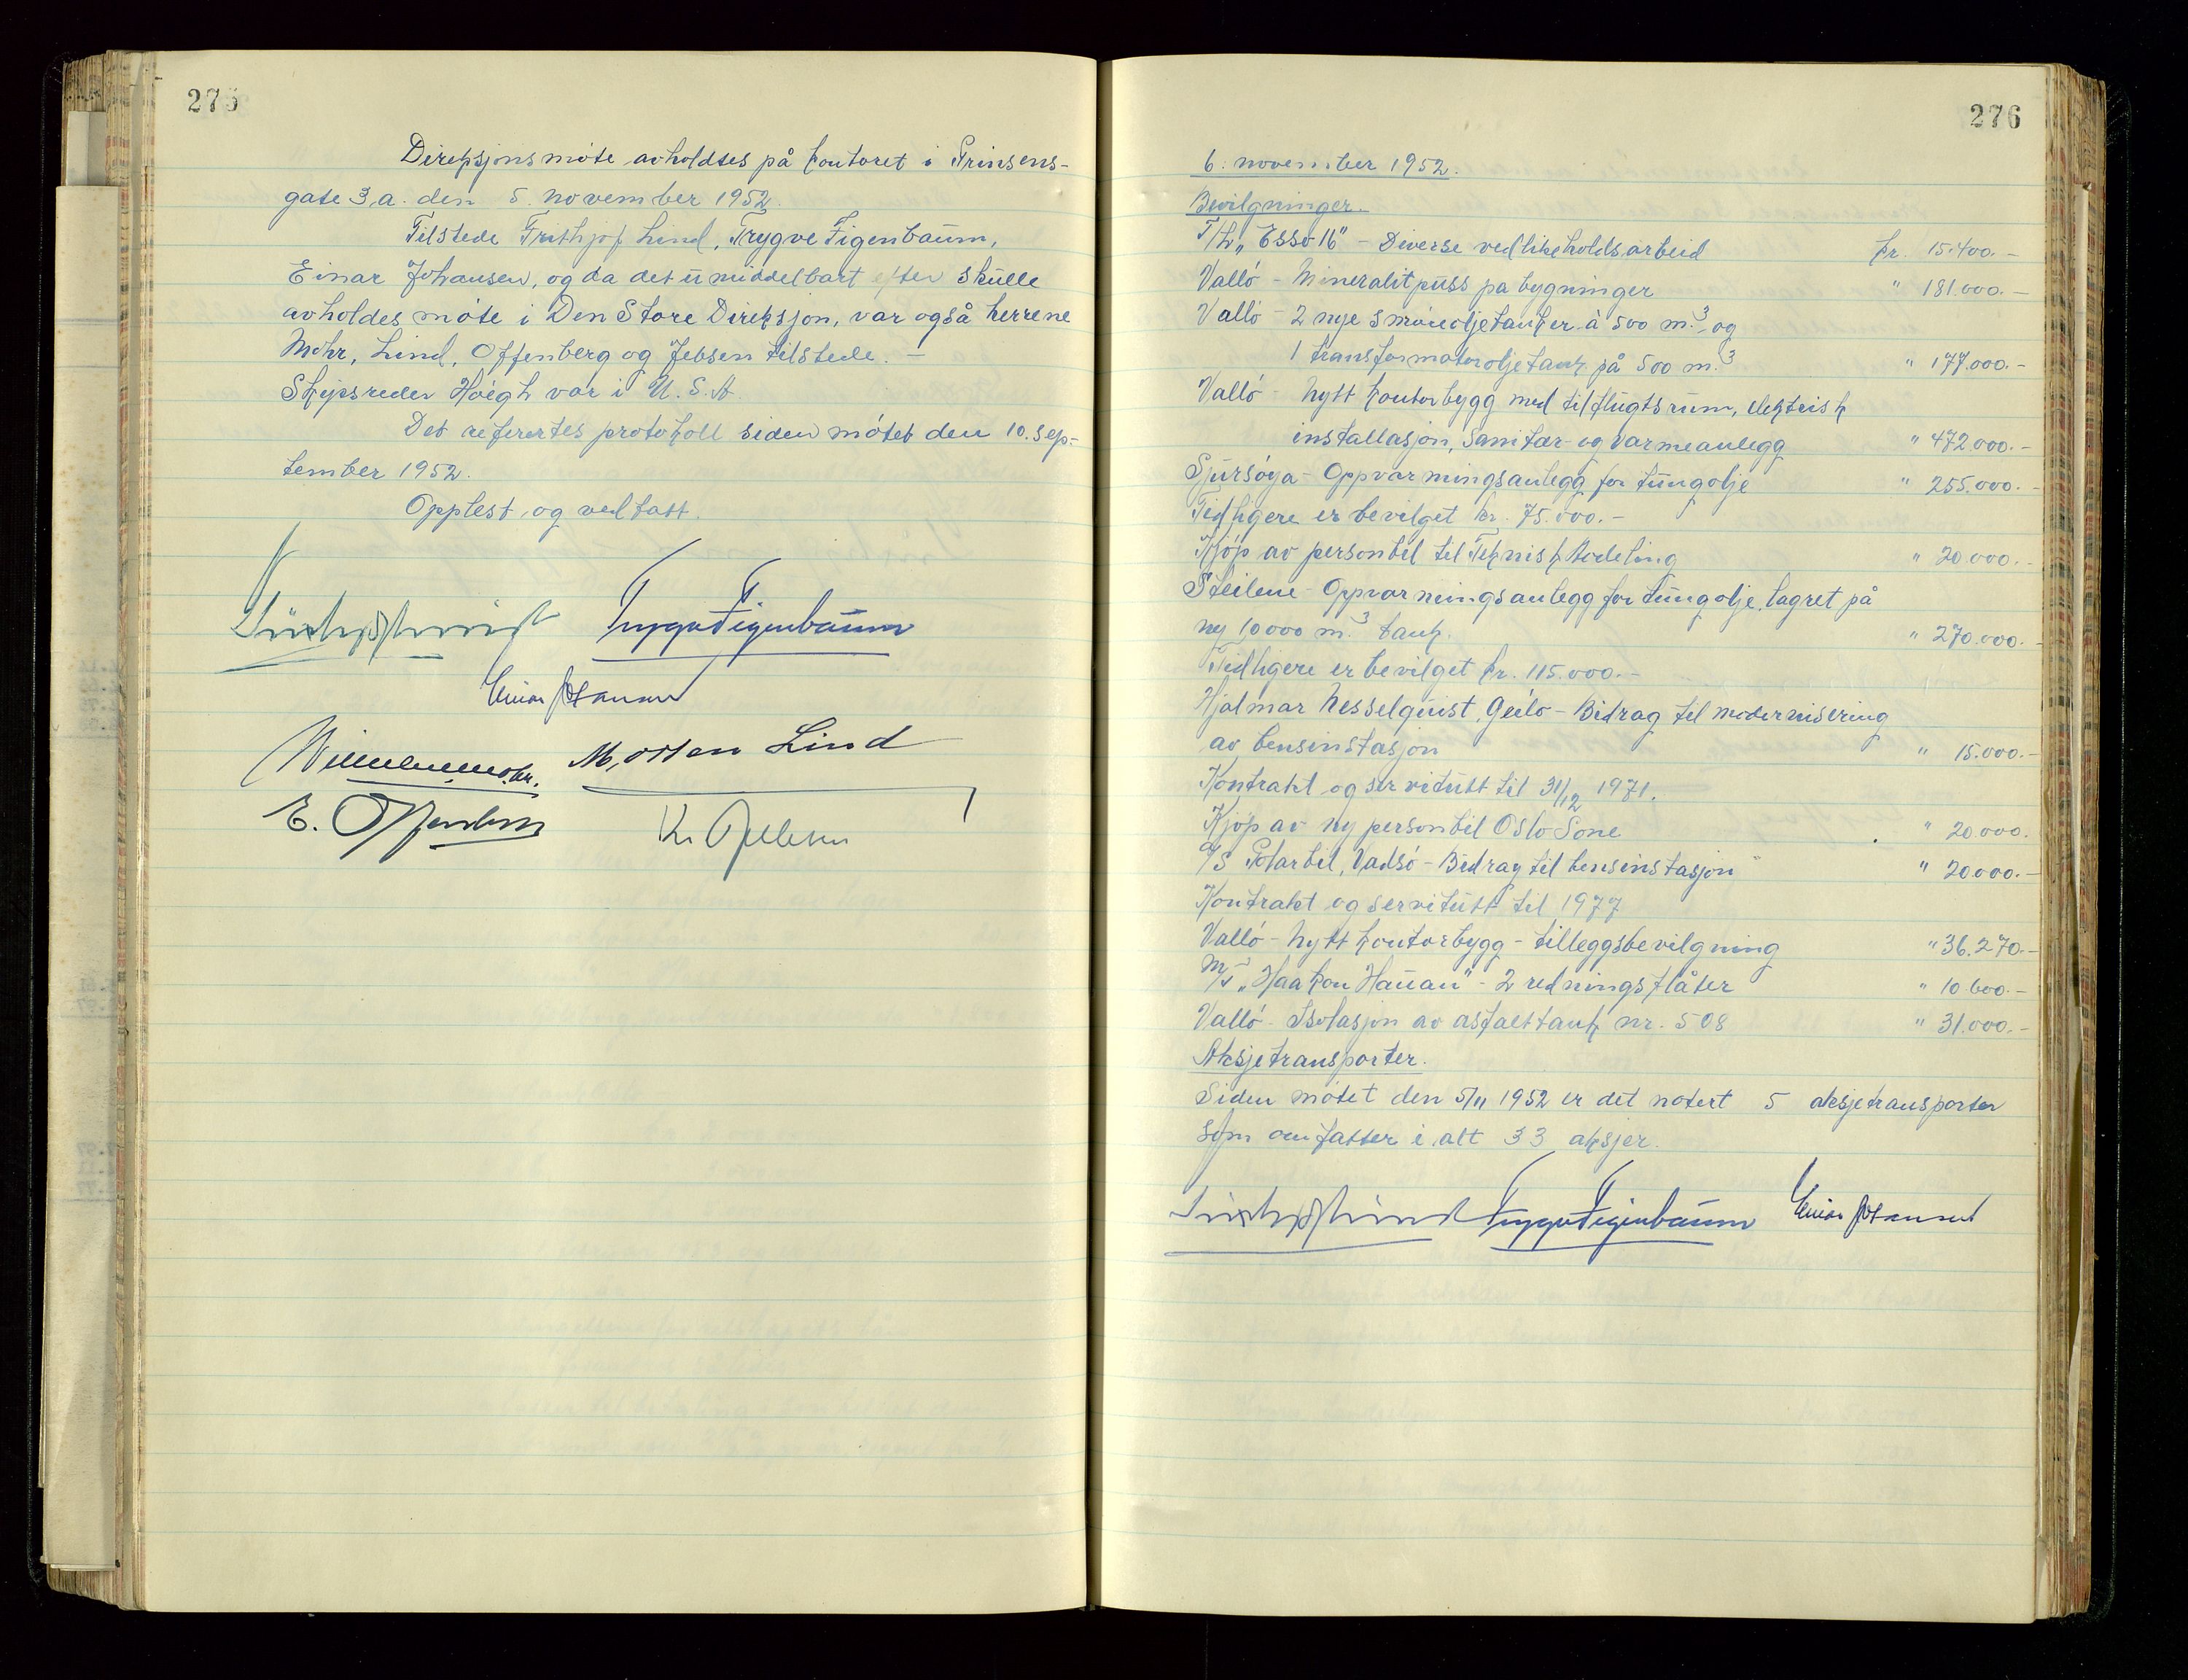 275
Direksjonsmöte avholdtes på kontoret i Prinsens-
gate 3, a. den 5. november 1952.
Tilstede Frithjof Lind, Trygve Figenbaum,
Einar Johansen, og da det umiddelbart efter skulle
avholdes möte i Den Store Direksjon, var også herrene
Mohr, Lind, Offenberg og Jebsen tilstede. -
Skipsreder Höegh var i U.S.A
Det referertes protokoll siden mötet den 10. sep-
tember 1952.
Opplest og vedtatt.
Trygve Figenbaum
Einar Johansen
Morten Lind
E. Offenberg
276
6. november 1952.
Bevilgninger.
T/L "Esso 16" - Diverse vedlikeholdsarbeid kr. 15.400.-
Vallö - Mineralitpuss på bygninger " 181.000.-
Vallö - 2 nye smöreoljetanker à 500 m.3, og
1 transformatoroljetank på 500 m.3 " 177.000.-
Vallö - Nytt kontorbygg med tilflugtsrum, elektrisk
installasjon, Sanitær- og varmeanlegg " 472.000.-
Sjursöya - Oppvarmingsanlegg for tungolje " 255.000.-
Tidligere er bevilget kr. 75.000.-
Kjöp av personbil til Teknisk Avdeling " 20.000.-
Steilene - Oppvarmingsanlegg for tungolje, lagret på
ny 10000 m.3 tank. " 270.000.-
Tidligere er bevilget kr. 115.000.-
Hjalmar Nesselquist, Geilo - Bidrag til modernisering
av bensinstasjon " 15.000.-
Kontrakt og servitutt til 31/12 1971.
Kjöp av ny personbil Oslo Sone " 20.000.
A/S Polarbil, Vadsö - Bidrag til bensinstasjon " 20.000.-
Kontrakt og servitutt til 1977
Vallö - Nytt kontorbygg - tilleggsbevilgning " 36.270.-
M/T "Haakon Hauan" - 2 redningsflåter " 10.600.-
Vallö - Isolasjon av asfalttank nr. 508 " 31.000.-
Aksjetransporter.
Siden mötet den 5/11 1952 er det notert 5 aksjetransporter
som omfatter i alt 33 aksjer.
Trygve Figenbaum Einar Johansen